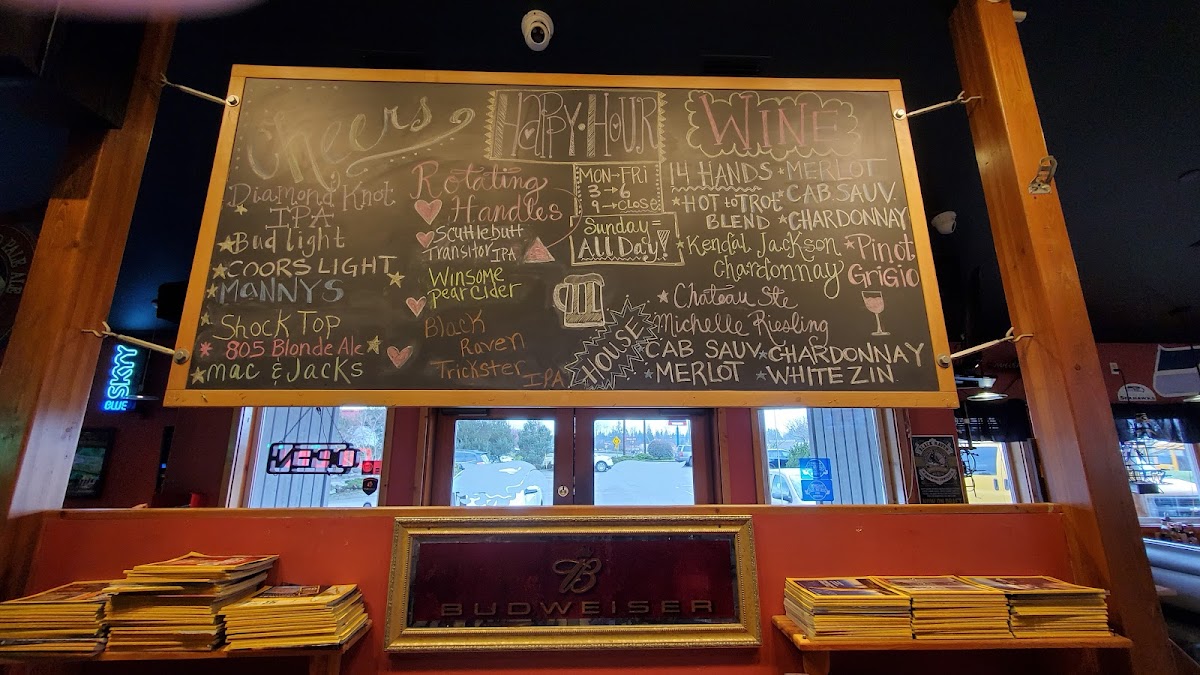 Cheers
Diamond Knot
IPA
Bud light
COORS LIGHT
MANNYS
Shock Top
805 Blonde Ale
mac & Jacks
Rotating
Handles
Scuttlebutt
Transitor IPA
Winsome
Pear Cider
Black
Raven
Trickster IPA
HAPPY HOUR
MON-FRI
3→6
9→close
Sunday =
ALL Day!
HOUSE
WINE
14 HANDS
HOT to TROT
BLEND
MERLOT
CAB. SAUV.
CHARDONNAY
Kendal Jackson
Chardonnay
Pinot
Grigio
Chateau Ste
Michelle Riesling
CAB SAUV. CHARDONNAY
MERLOT WHITE ZIN
SKYY
BLUE
OPEN
B
BUDWEISER
SEAHAWKS